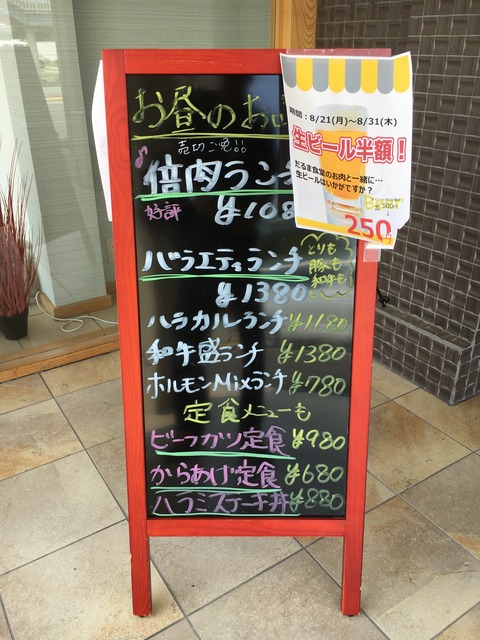 お昼のお
売切ご免!!
倍肉ラン
好評 ¥108
バラエティランチ
とりも
豚も
和牛も
¥1380
ハラカルランチ ¥1180
和牛盛ランチ ¥1380
ホルモンMixランチ ¥780
定食メニューも
ビーフカツ定食 ¥980
からあげ定食 ¥680
ハラミステーキ丼 ¥880
時間:8/21(月)～8/31(木)
生ビール半額!
だるま食堂のお肉と一緒に…
生ビールはいかがですか?
250